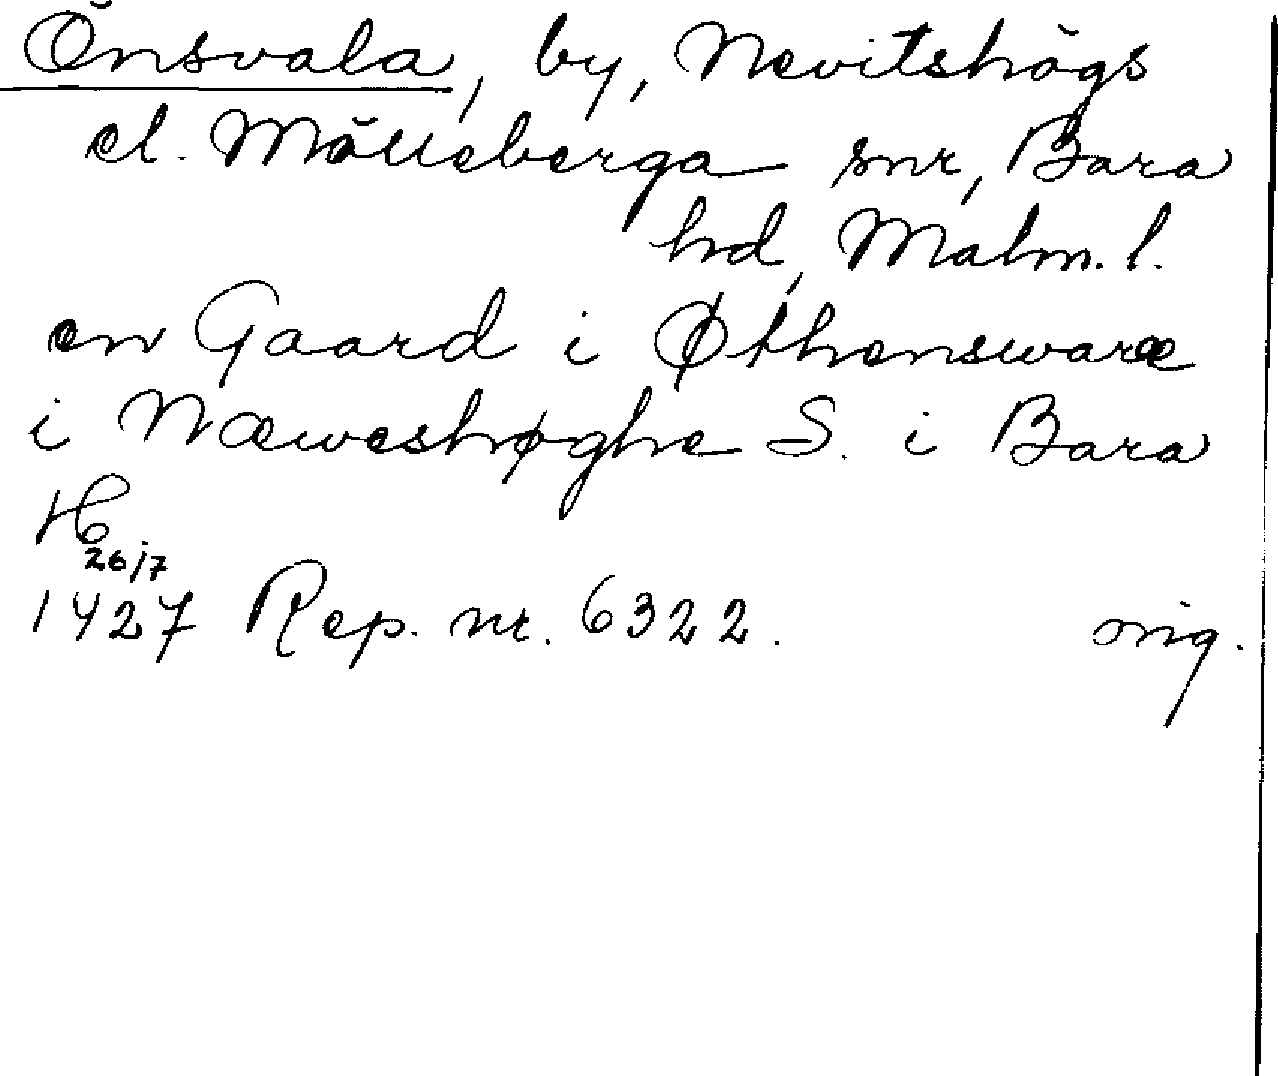 Önsvala, by, Nevitshögs
el. Mölleberga snr, Bara
hd, Malm. l.
en Gaard i Øthenswaræ
i Næweshøghe S. i Bara
H
26/7
1427 Rep. nr. 6322. orig.